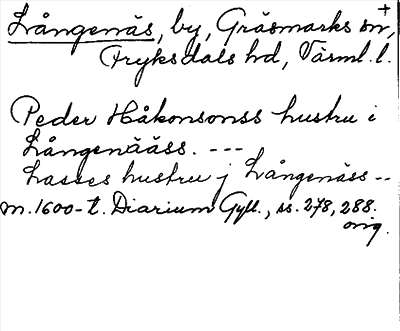 Långenäs, by, Gräsmarks sn, +
Fryksdals hd, Värml. l.
Peder Håkonsonss hustru i
Långenääss. ---
Lasses hustru j Långenäss --
m. 1600-t. Diarium Gyll., ss. 278, 288.
orig.